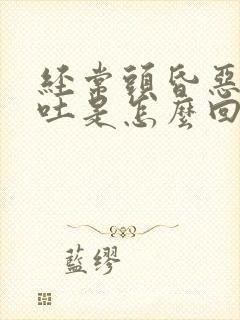 經常頭昏惡
吐是怎麼回
藍繆